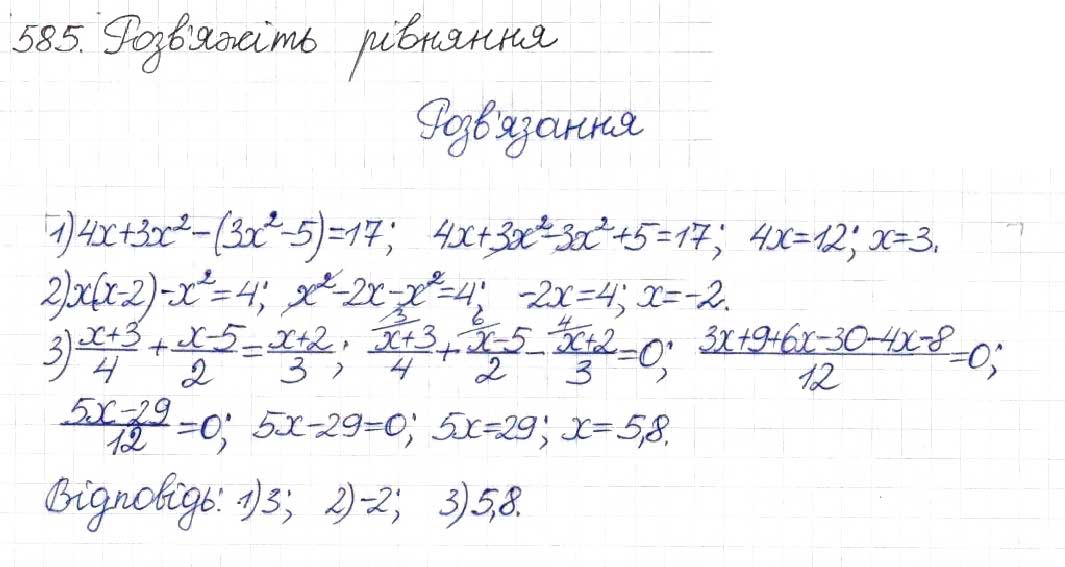 585. Розв'яжіть рівняння
Розв'язання
1) 4x+3x²-(3x²-5)=17; 4x+3x²-3x²+5=17; 4x=12; x=3.
2) x(x-2)-x²=4; x²-2x-x²=4; -2x=4; x=-2.
3) (x+3)/4 + (x-5)/2 = (x+2)/3; ³/(x+3)/4 + ⁶/(x-5)/2 - ⁴/(x+2)/3 = 0; (3x+9+6x-30-4x-8)/12 = 0;
(5x-29)/12 = 0; 5x-29=0; 5x=29; x=5,8.
Відповідь: 1) 3; 2) -2; 3) 5,8.